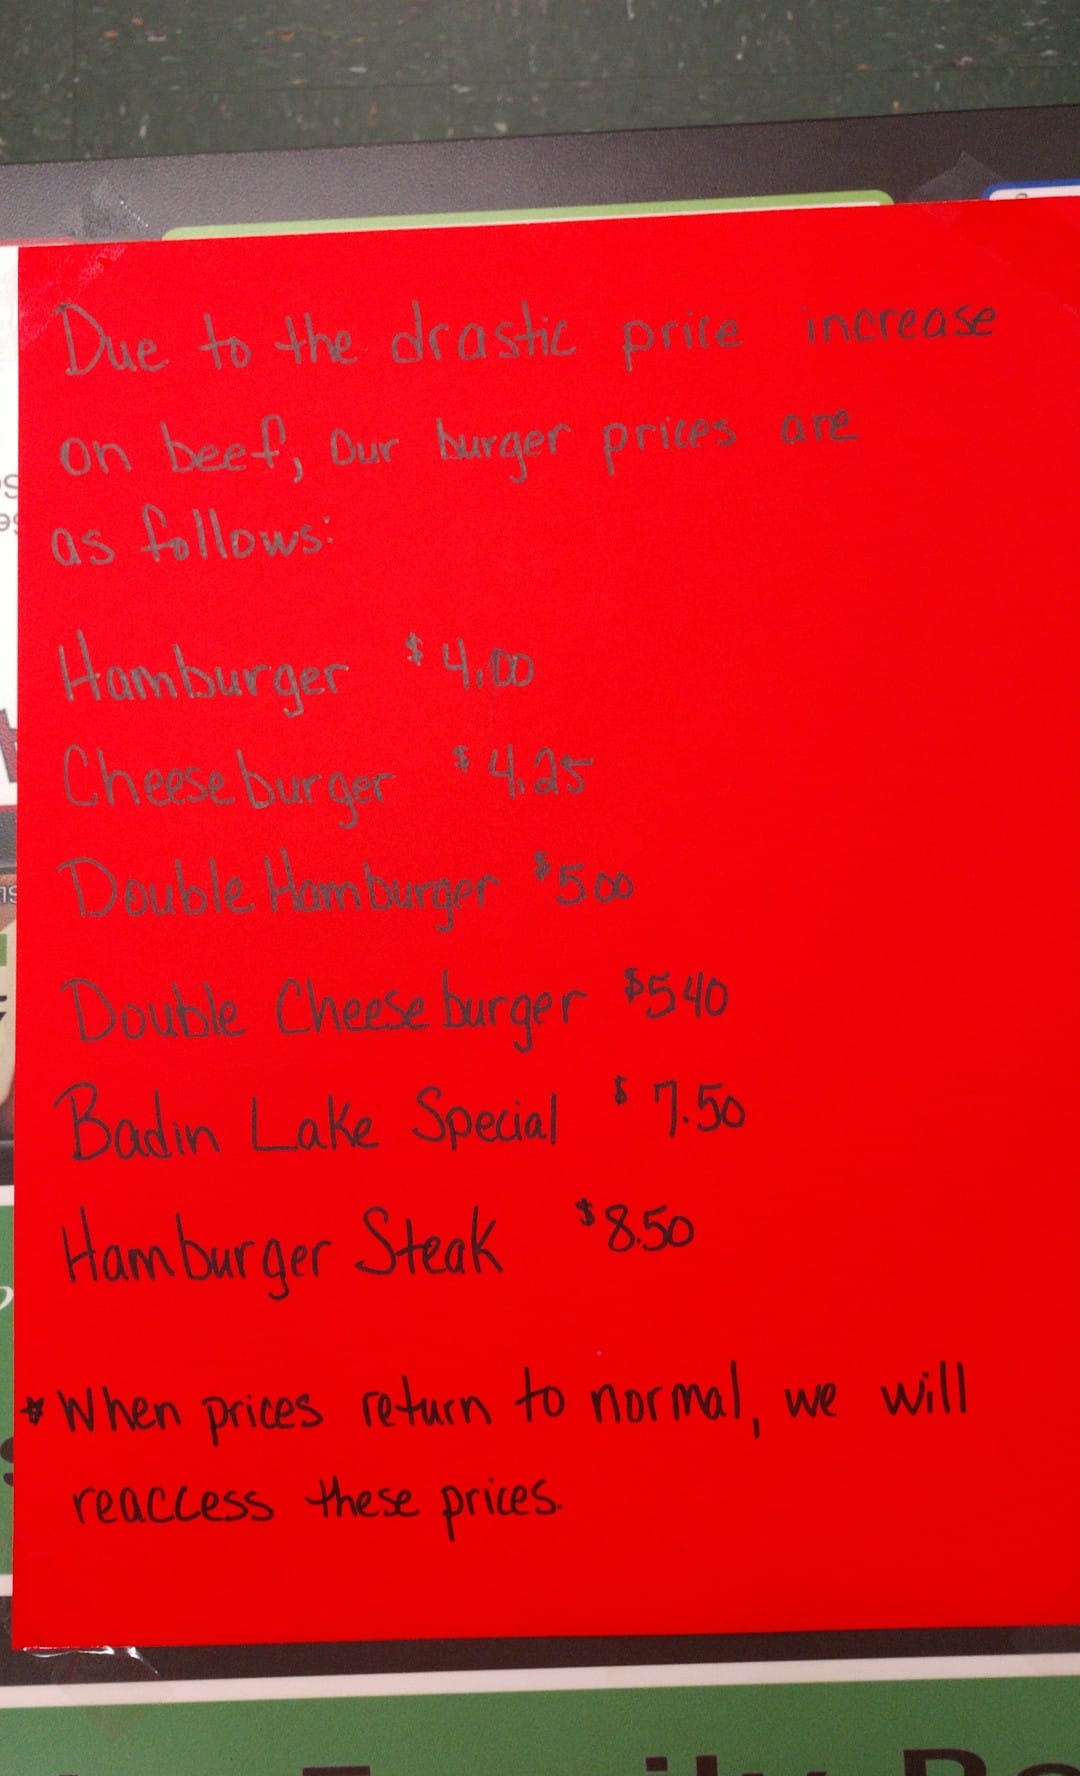 Due to the drastic price increase
on beef, our burger prices are
as follows:
Hamburger $4.00
Cheeseburger $4.25
Double Hamburger $5 00
Double Cheeseburger $5 40
Badin Lake Special $7.50
Hamburger Steak $8.50
* When prices return to normal, we will
reaccess these prices.
Family